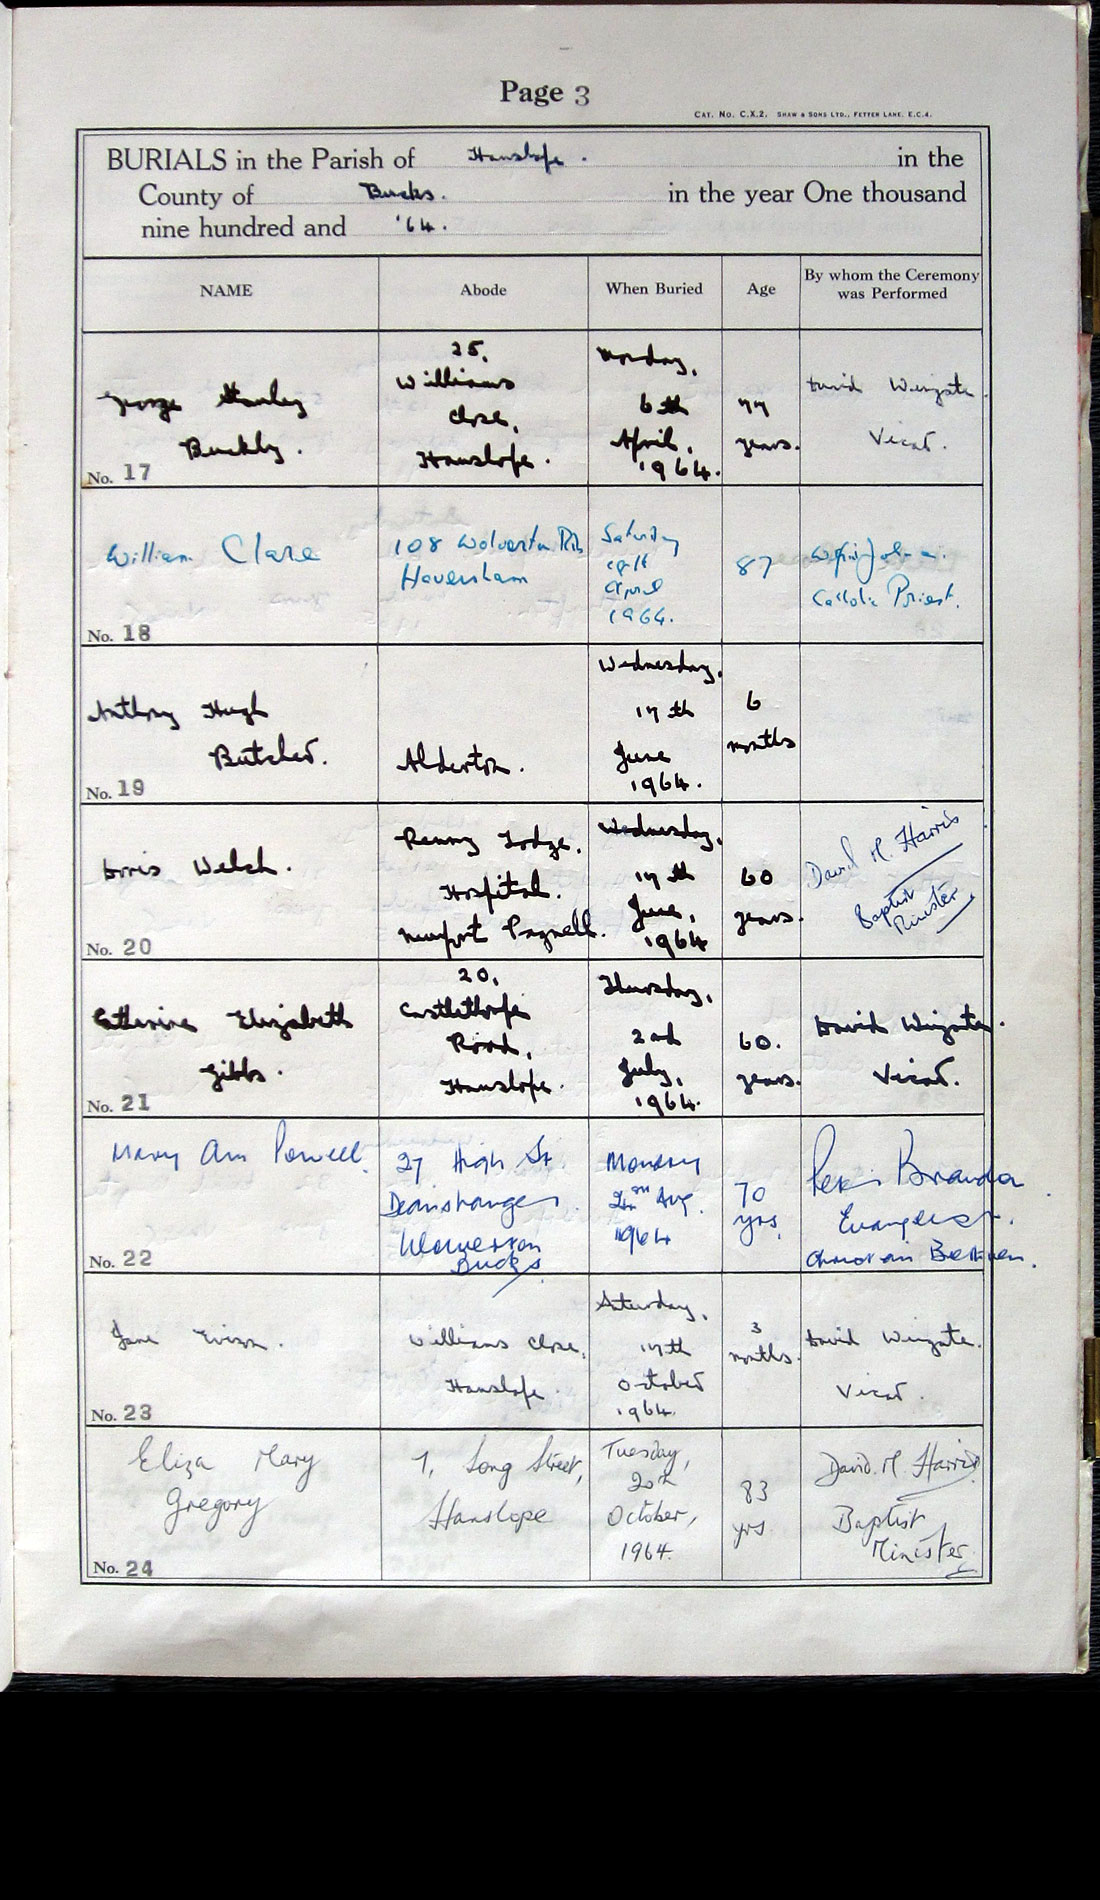 Page 3
CAT. No. C.X.2. SHAW & SONS LTD., FETTER LANE, E.C.4.
BURIALS in the Parish of Hanslope. in the
County of Bucks. in the year One thousand
nine hundred and '64.
NAME Abode When Buried Age By whom the Ceremony was Performed
George Stanley
Buckby.
No. 17
25,
Williams
Close,
Hanslope.
Monday,
6th
April,
1964.
77
years.
David Wingate.
Vicar.
William Clare
No. 18
108 Wolverton Rd
Haversham
Saturday
April
1964.
87
Catholic Priest.
Anthony Hugh
Butcher.
No. 19
Alderton.
Wednesday,
17th
June
1964.
6
months
Doris Welch.
No. 20
Renny Lodge,
Hospital.
Newport Pagnell.
Wednesday,
17th
June,
1964
60
years.
David M. Harris
Baptist
Minister
Catherine Elizabeth
Gibbs.
No. 21
20,
Castlethorpe
Road,
Hanslope.
Thursday,
2nd
July,
1964.
60.
years.
David Wingate.
Vicar.
Mary Ann Powell.
No. 22
27 High St.
Deanshanger.
Wolverton
Bucks
Monday
Aug.
1964
70
yrs.
Evangelist.
Christian Brethren.
Jane
No. 23
Williams Close,
Hanslope.
Saturday,
17th
October
1964.
3
months.
David Wingate.
Vicar.
Eliza Mary
Gregory
No. 24
Long Street,
Hanslope
Tuesday,
20th
October,
1964.
83
yrs
David. M. Harris
Baptist
Minister